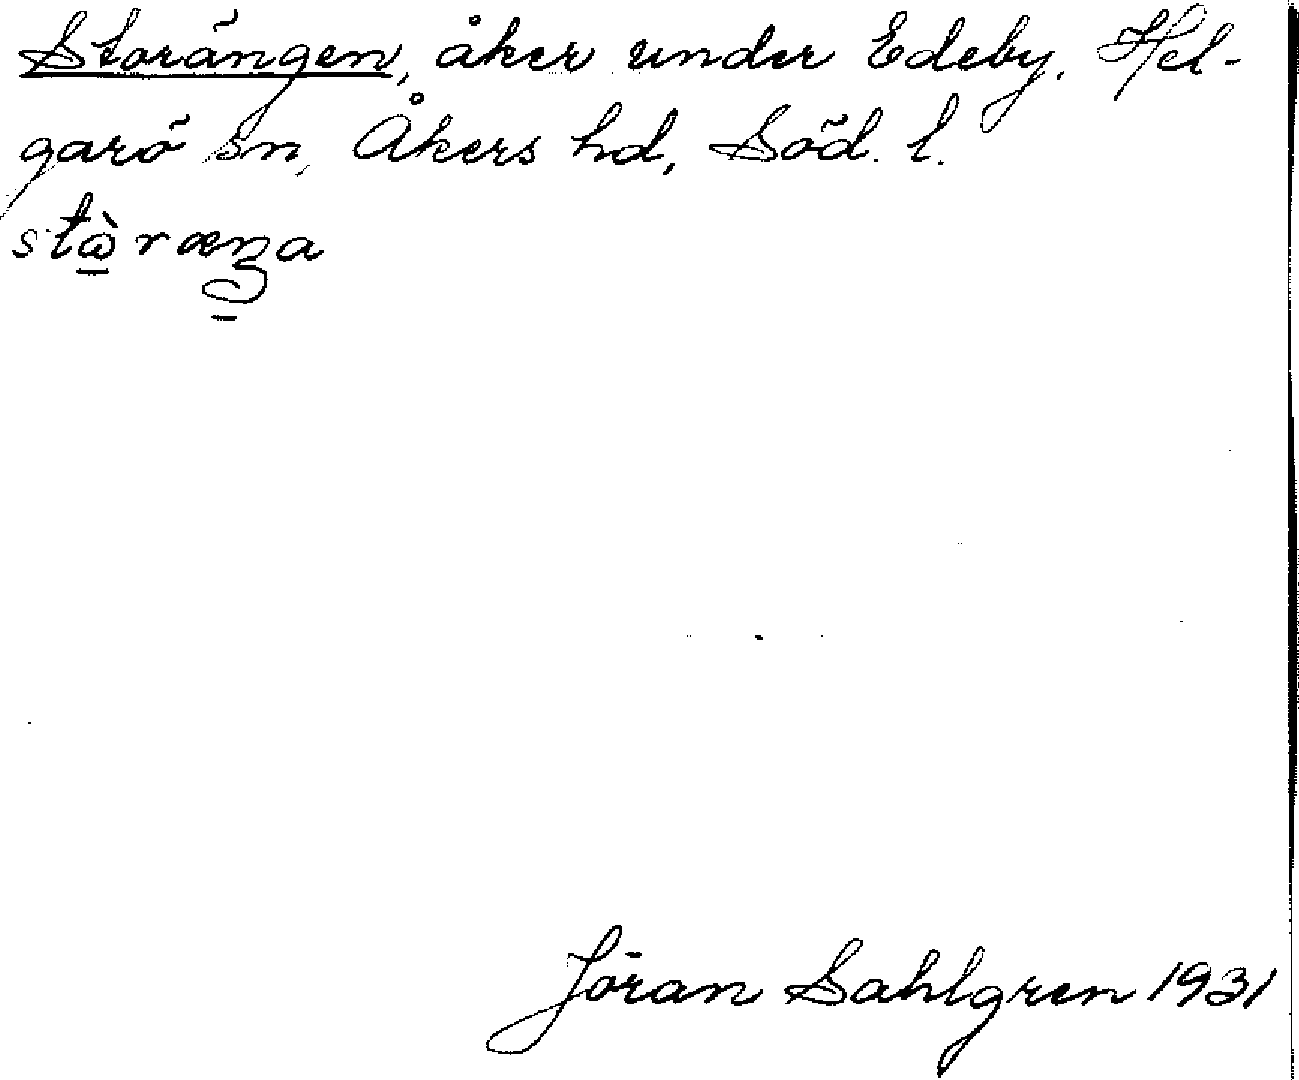 Storängen, åker under Edeby, Hel-
garö sn, Åkers hd, Söd. l.
stɷ̀ræŋa
Jöran Sahlgren 1931